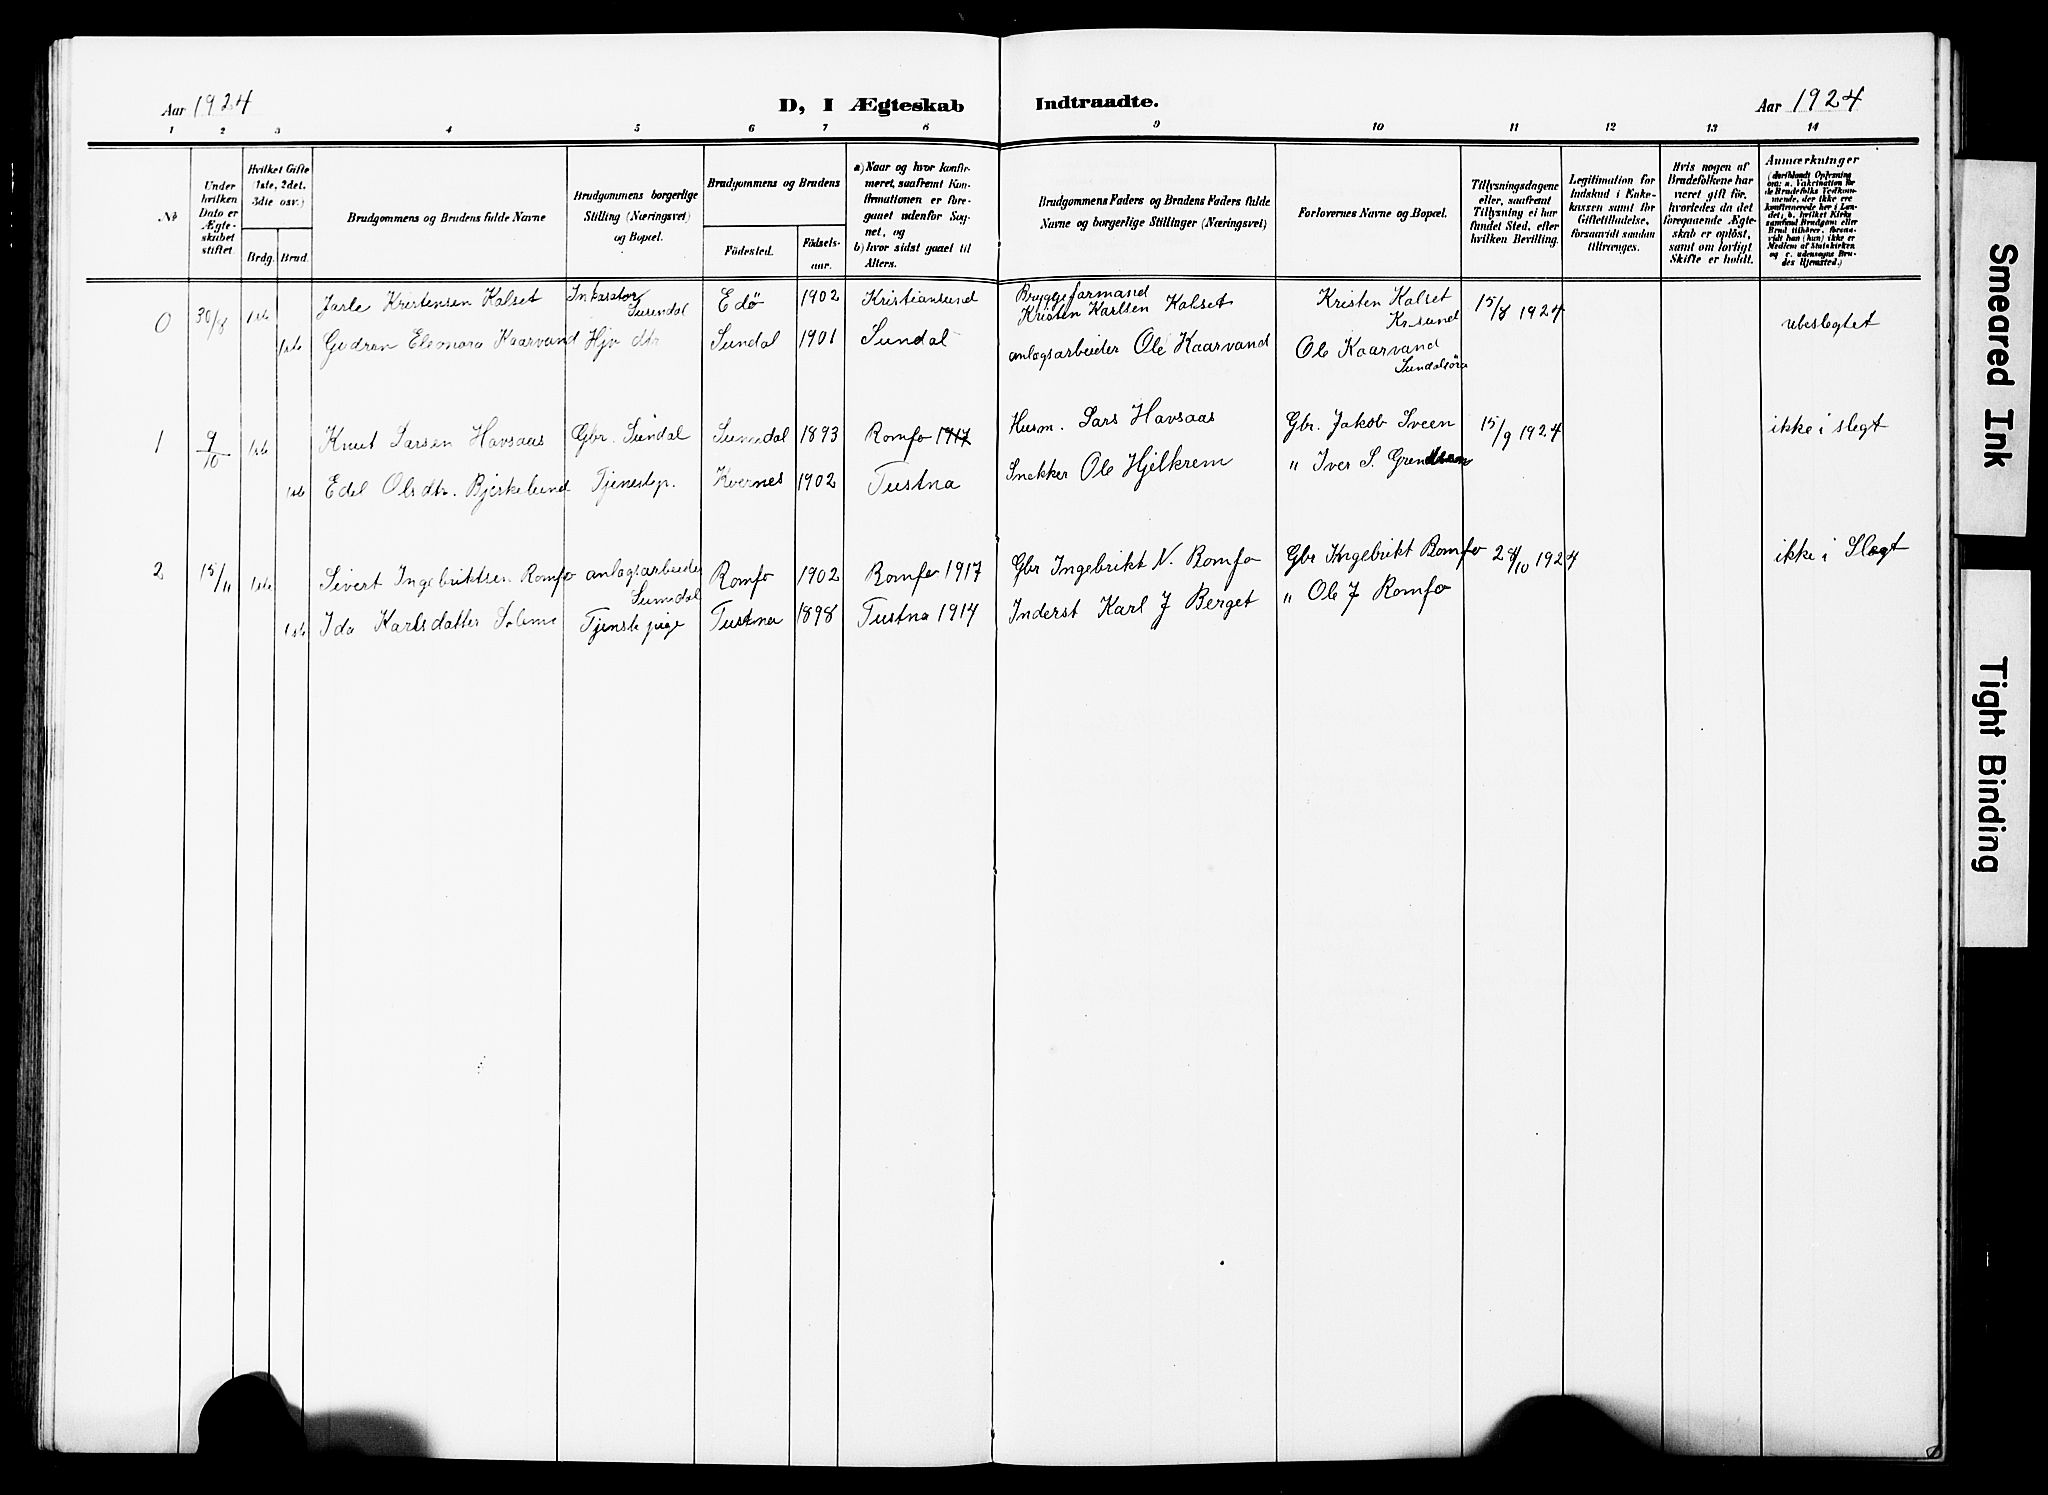 Aar 1924
D, I Ægteskab Indtraadte.
Aar 1924
1 2 3 4 5 6 7 8 9 10 11 12 13 14
№
Under hvilken Dato er Ægteskabet stiftet.
Hvilket Gifte (1ste, 2det. 3die osv.)
Brdg. Brud.
Brudgommens og Brudens fulde Navne
Brudgommens borgerlige Stilling (Næringsvei) og Bopæl.
Brudgommens og Brudens
Födested.
Födsels-aar.
a) Naar og hvor konfirmeret, saafremt Konfirmationen er foregaaet udenfor Sognet, og
b) hvor sidst gaaet til Alters.
Brudgommens Faders og Brudens Faders fulde Navne og borgerlige Stillinger (Næringsvei)
Forlovernes Navne og Bopæl.
Tillysningsdagene eller, saafremt Tillysning ei har fundet Sted, efter hvilken Bevilling.
Legitimation for Indskud i Enkekassen samt for Giftetilladelse, forsaavidt saadan tiltrænges.
Hvis nogen af Brudefolkene har været gift för, hvorledes da det foregaaende Ægteskab er oplöst, samt om lovligt Skifte er holdt.
Anmærkninger
(deriblandt Oplysning om: a. Vakcination for de Brudefolks Vedkommende, der ikke ere konfirmerede her i Landet; b. hvilket Kirkesamfund Brudgom eller Brud tilhører, forsaavidt han (hun) ikke er Medlem af Statskirken og c. udensogns Brudes Hjemsted.)
0 30/8 1ste Jarle Kristensen Kalset Inkasator Sunndal Edø 1902 Kristiansund Bryggeformand Kristen Karlsen Kalset Kristen Kalset Kr.sund 15/8 1924 ubeslegtet
1ste Gudrun Eleonora Kaarvand Hjv dtr Sundal 1901 Sundal anlægsarbeider Ole Kaarvand Ole Kaarvand Sundalsöra
1 9/10 1ste Knut Larsen Havsaas Gbr. Sundal Sunndal 1893 Romfo 1917 Husm. Lars Havsaas Gbr. Jakob Sveen 15/9 1924 ikke i slegt
1ste Edel Olsdtr. Bjerkelund Tjenestep. Kvernes 1902 Tustna Snekker Ole Hjelkrem " Iver S.
2 15/11 1ste Sivert Ingebriktsen Romfo anlægsarbeider Sunndal Romfo 1902 Romfo 1917 Gbr Ingebrikt N. Romfo Gbr Ingebrikt Romfo 24/10 1924 ikke i Slægt
1ste Ida Karlsdatter Solemo Tjenstepige Tustna 1898 Tustna 1914 Inderst Karl J Berget " Ole J Romfo
Smeared Ink
Tight Binding